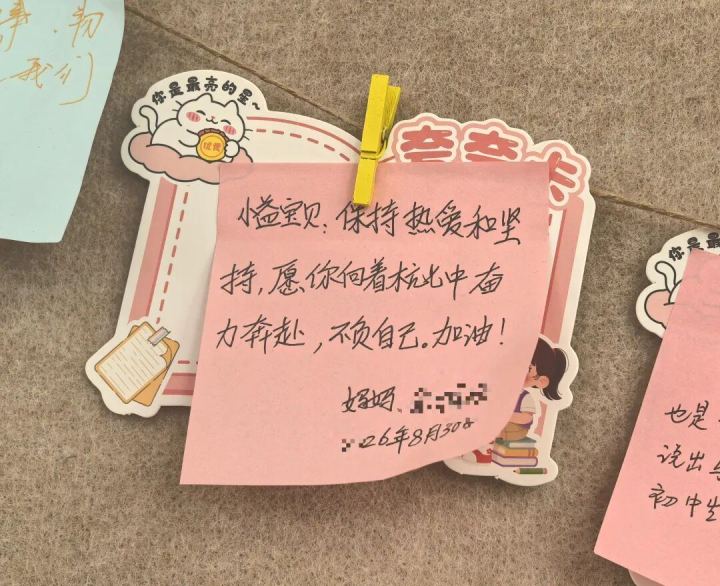 我们
你是最亮的星~
小益宝贝:保持热爱和坚
持,愿你向着杭七中奋
力奔赴,不负自己。加油!
妈妈、
26年8月30日
你是最
也是
说出
初中生